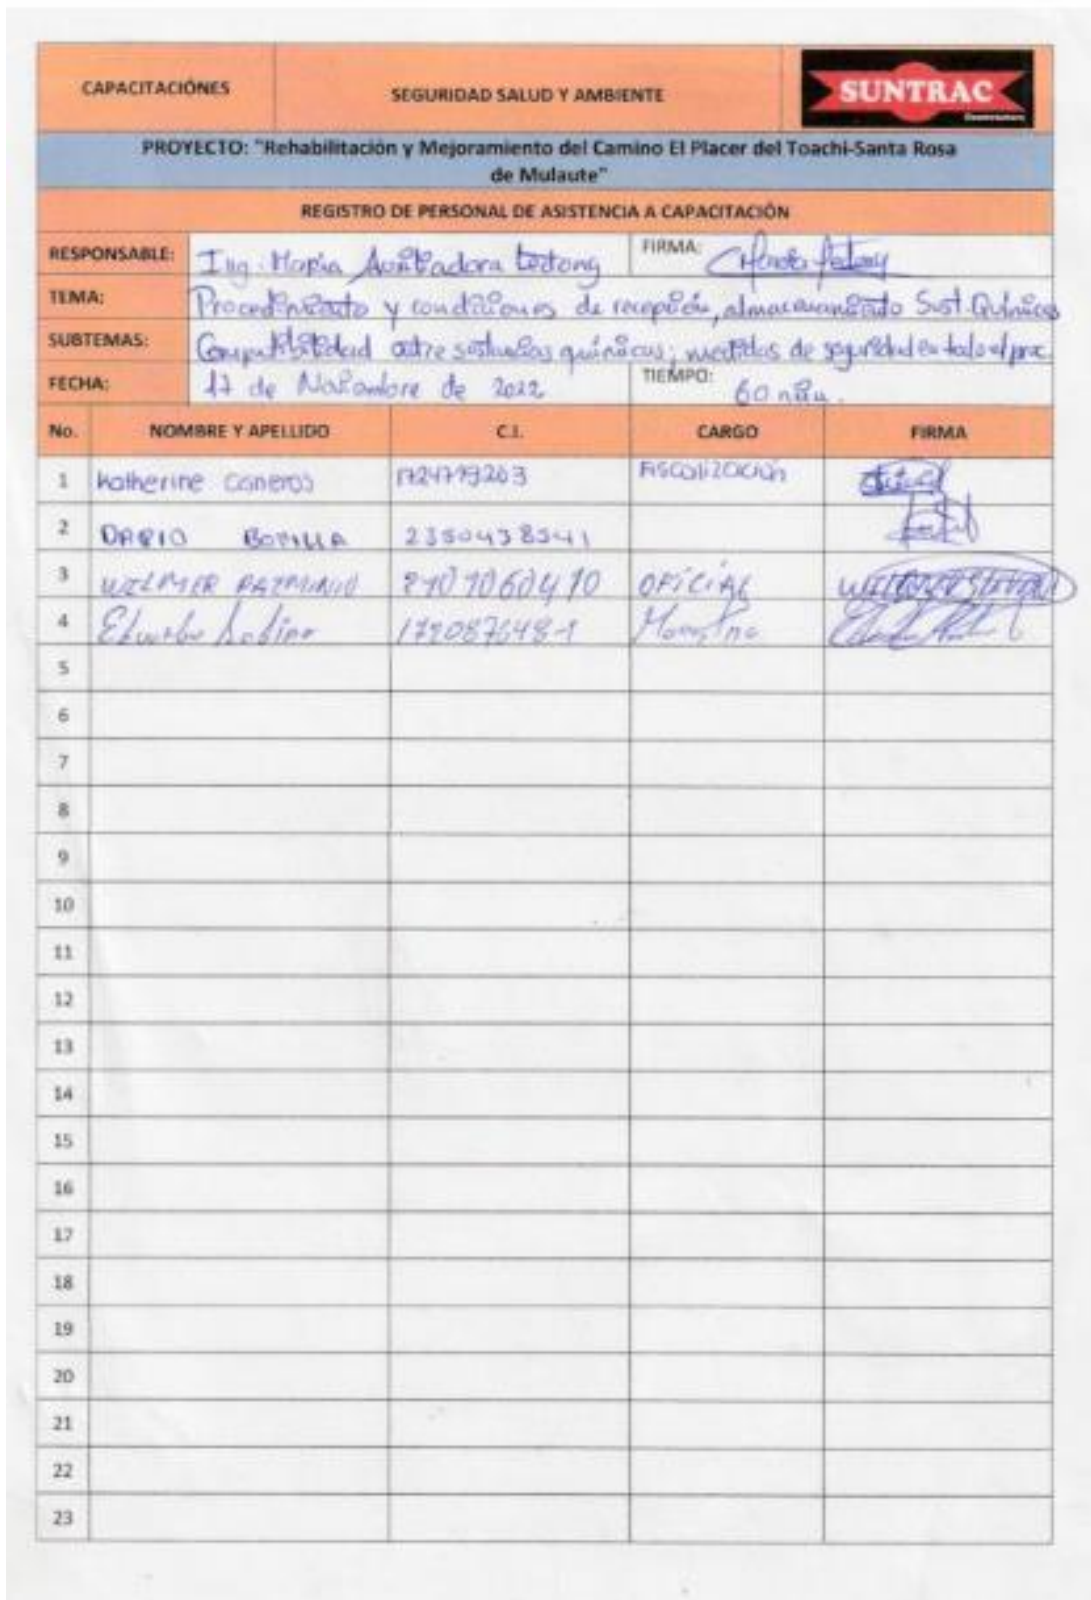 CAPACITACIÓNES SEGURIDAD SALUD Y AMBIENTE SUNTRAC
PROYECTO: "Rehabilitación y Mejoramiento del Camino El Placer del Toachi-Santa Rosa
de Mulaute"
REGISTRO DE PERSONAL DE ASISTENCIA A CAPACITACIÓN
RESPONSABLE: Ing. María Auxiliadora FIRMA:
TEMA: Procedimiento y condiciones de recepción, almacenamiento Sust. Químicas
SUBTEMAS: Compatibilidad entre sustancias químicas; medidas de seguridad en todo el proc.
FECHA: 17 de Noviembre de 2022 TIEMPO: 60 min.
No. NOMBRE Y APELLIDO C.I. CARGO FIRMA
1 Katherine Cisneros Fiscalización
2 DARIO BONILLA 2350438541
3 WILMER PAZMINIO OFICIAL
4
5
6
7
8
9
10
11
12
13
14
15
16
17
18
19
20
21
22
23